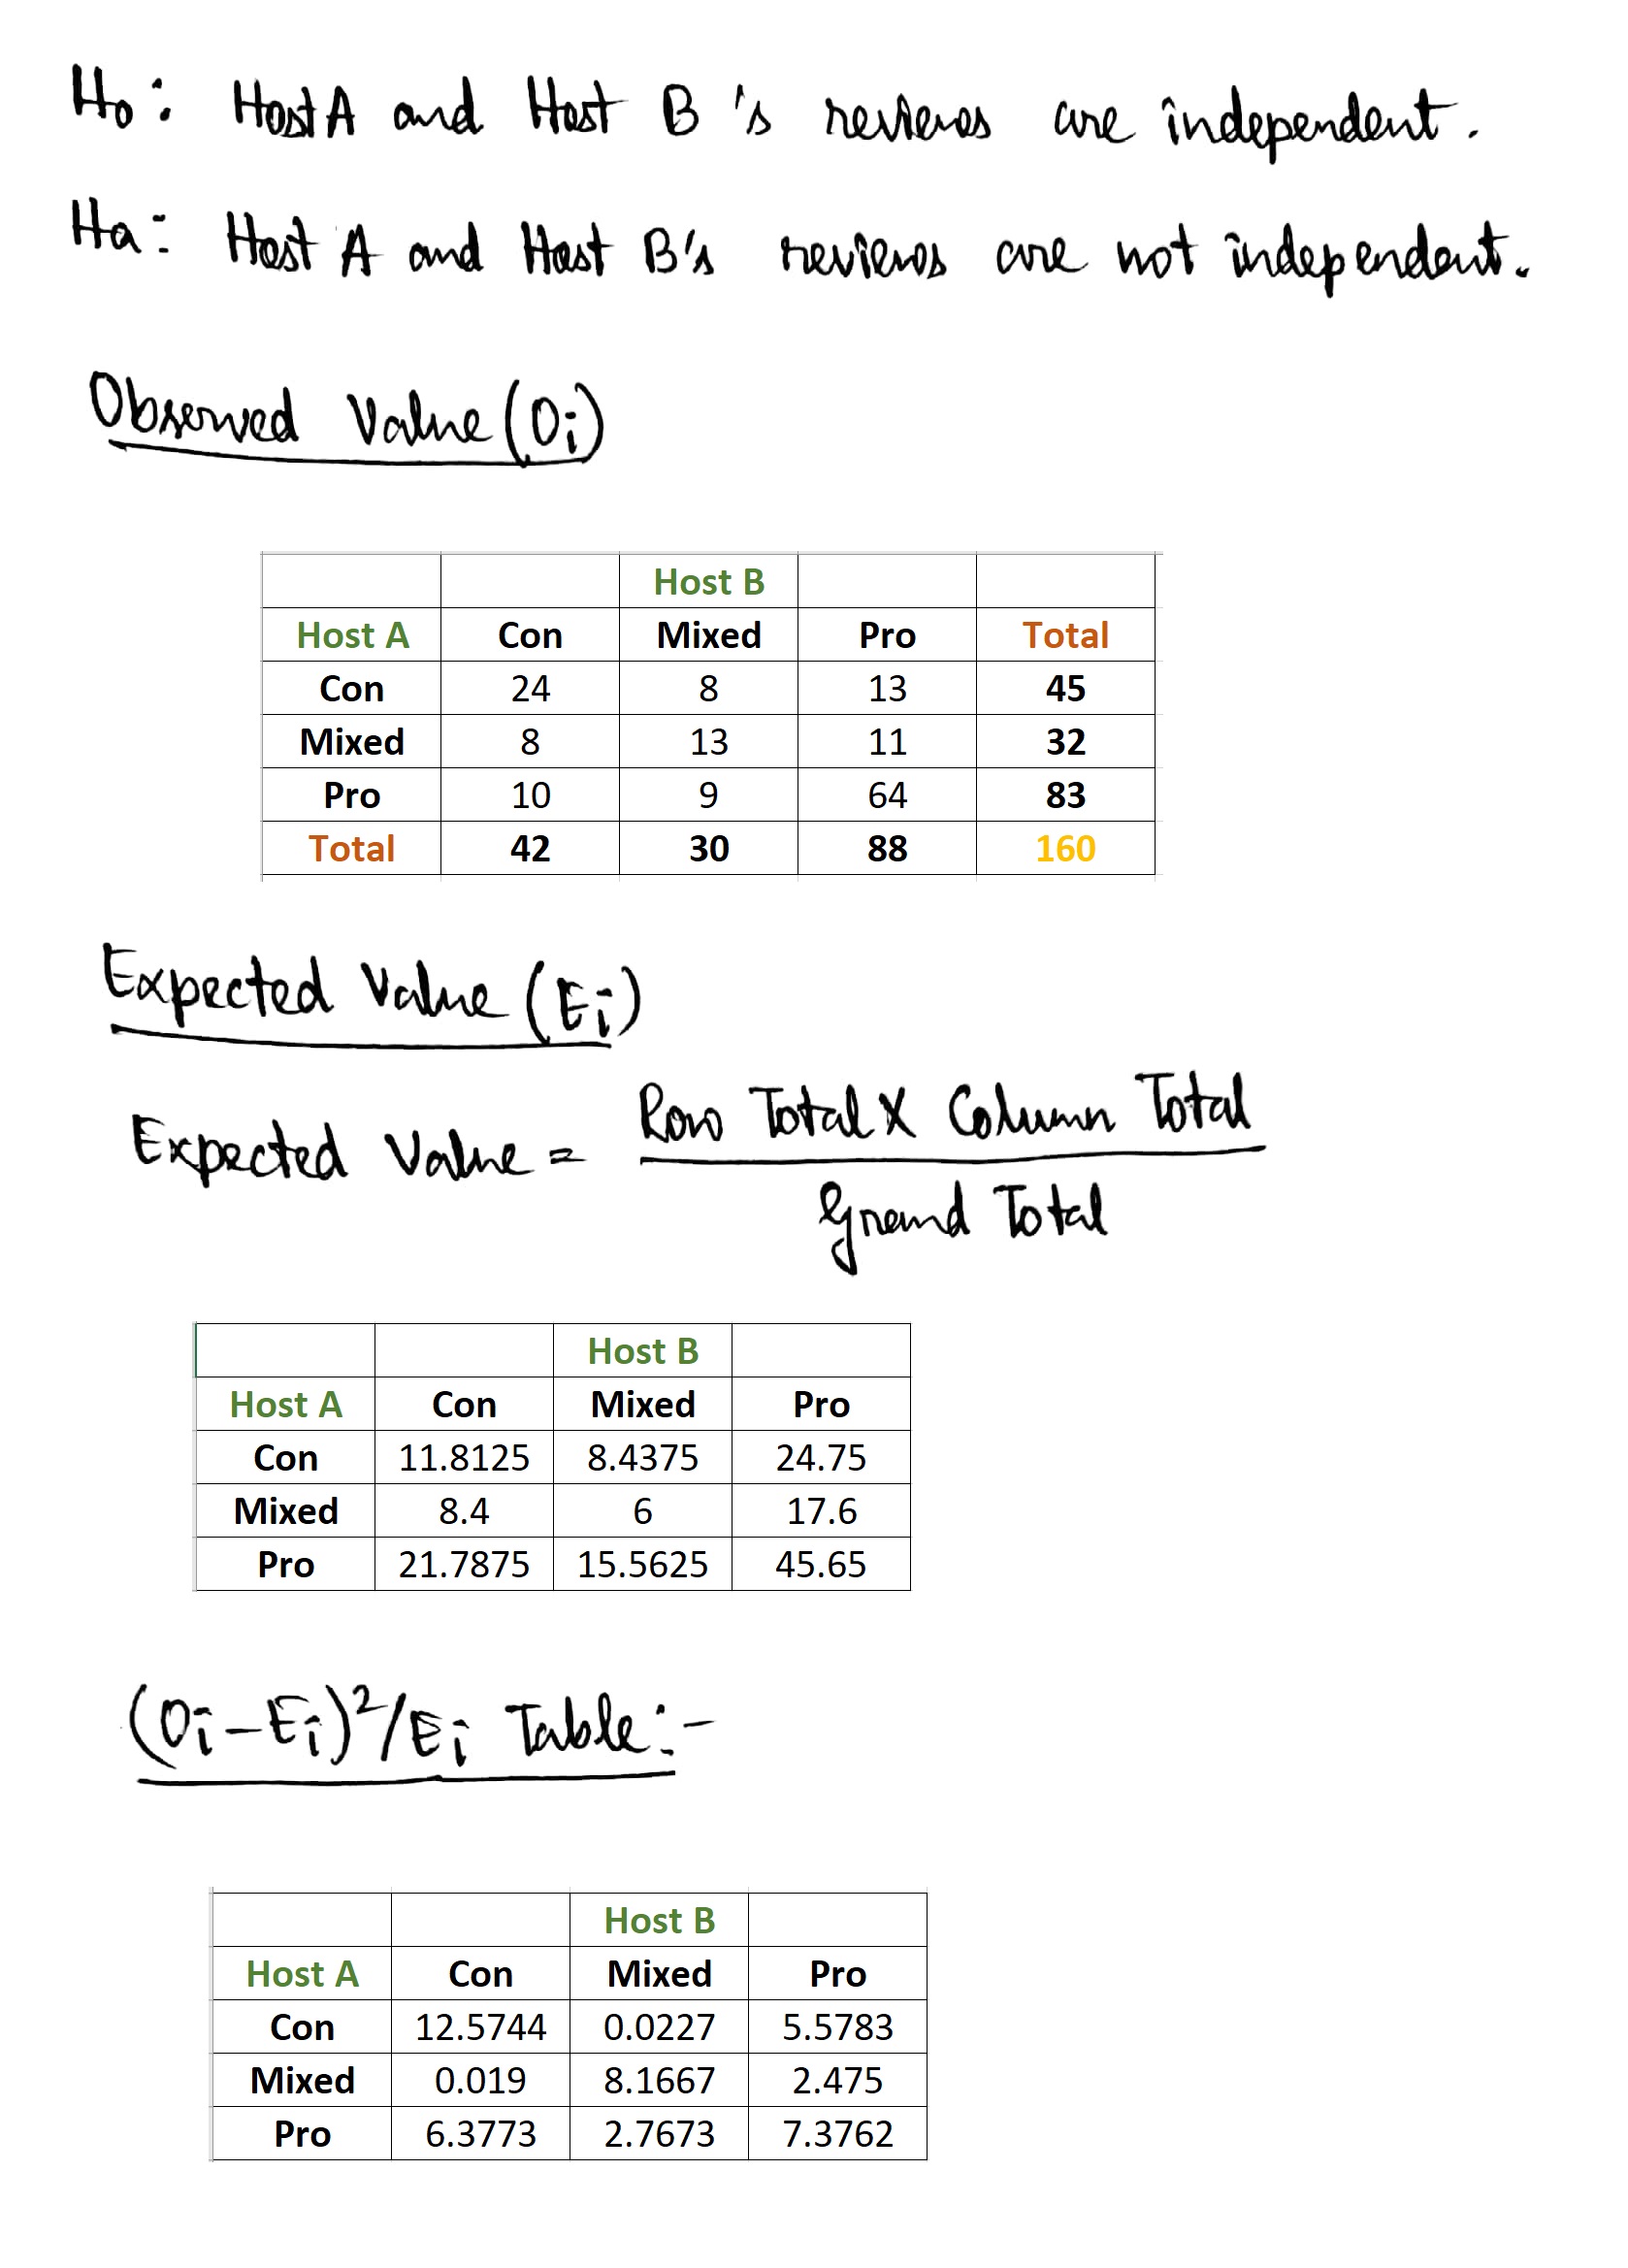 Ho: Host A and Host B's reviews are independent.
Ha: Host A and Host B's reviews are not independent.
Observed Value (Oi)
Host B
Host A Con Mixed Pro Total
Con 24 8 13 45
Mixed 8 13 11 32
Pro 10 9 64 83
Total 42 30 88 160
Expected Value (Ei)
Expected Value = Row Total X Column Total
Grand Total
Host B
Host A Con Mixed Pro
Con 11.8125 8.4375 24.75
Mixed 8.4 6 17.6
Pro 21.7875 15.5625 45.65
(Oi-Ei)²/Ei Table:-
Host B
Host A Con Mixed Pro
Con 12.5744 0.0227 5.5783
Mixed 0.019 8.1667 2.475
Pro 6.3773 2.7673 7.3762